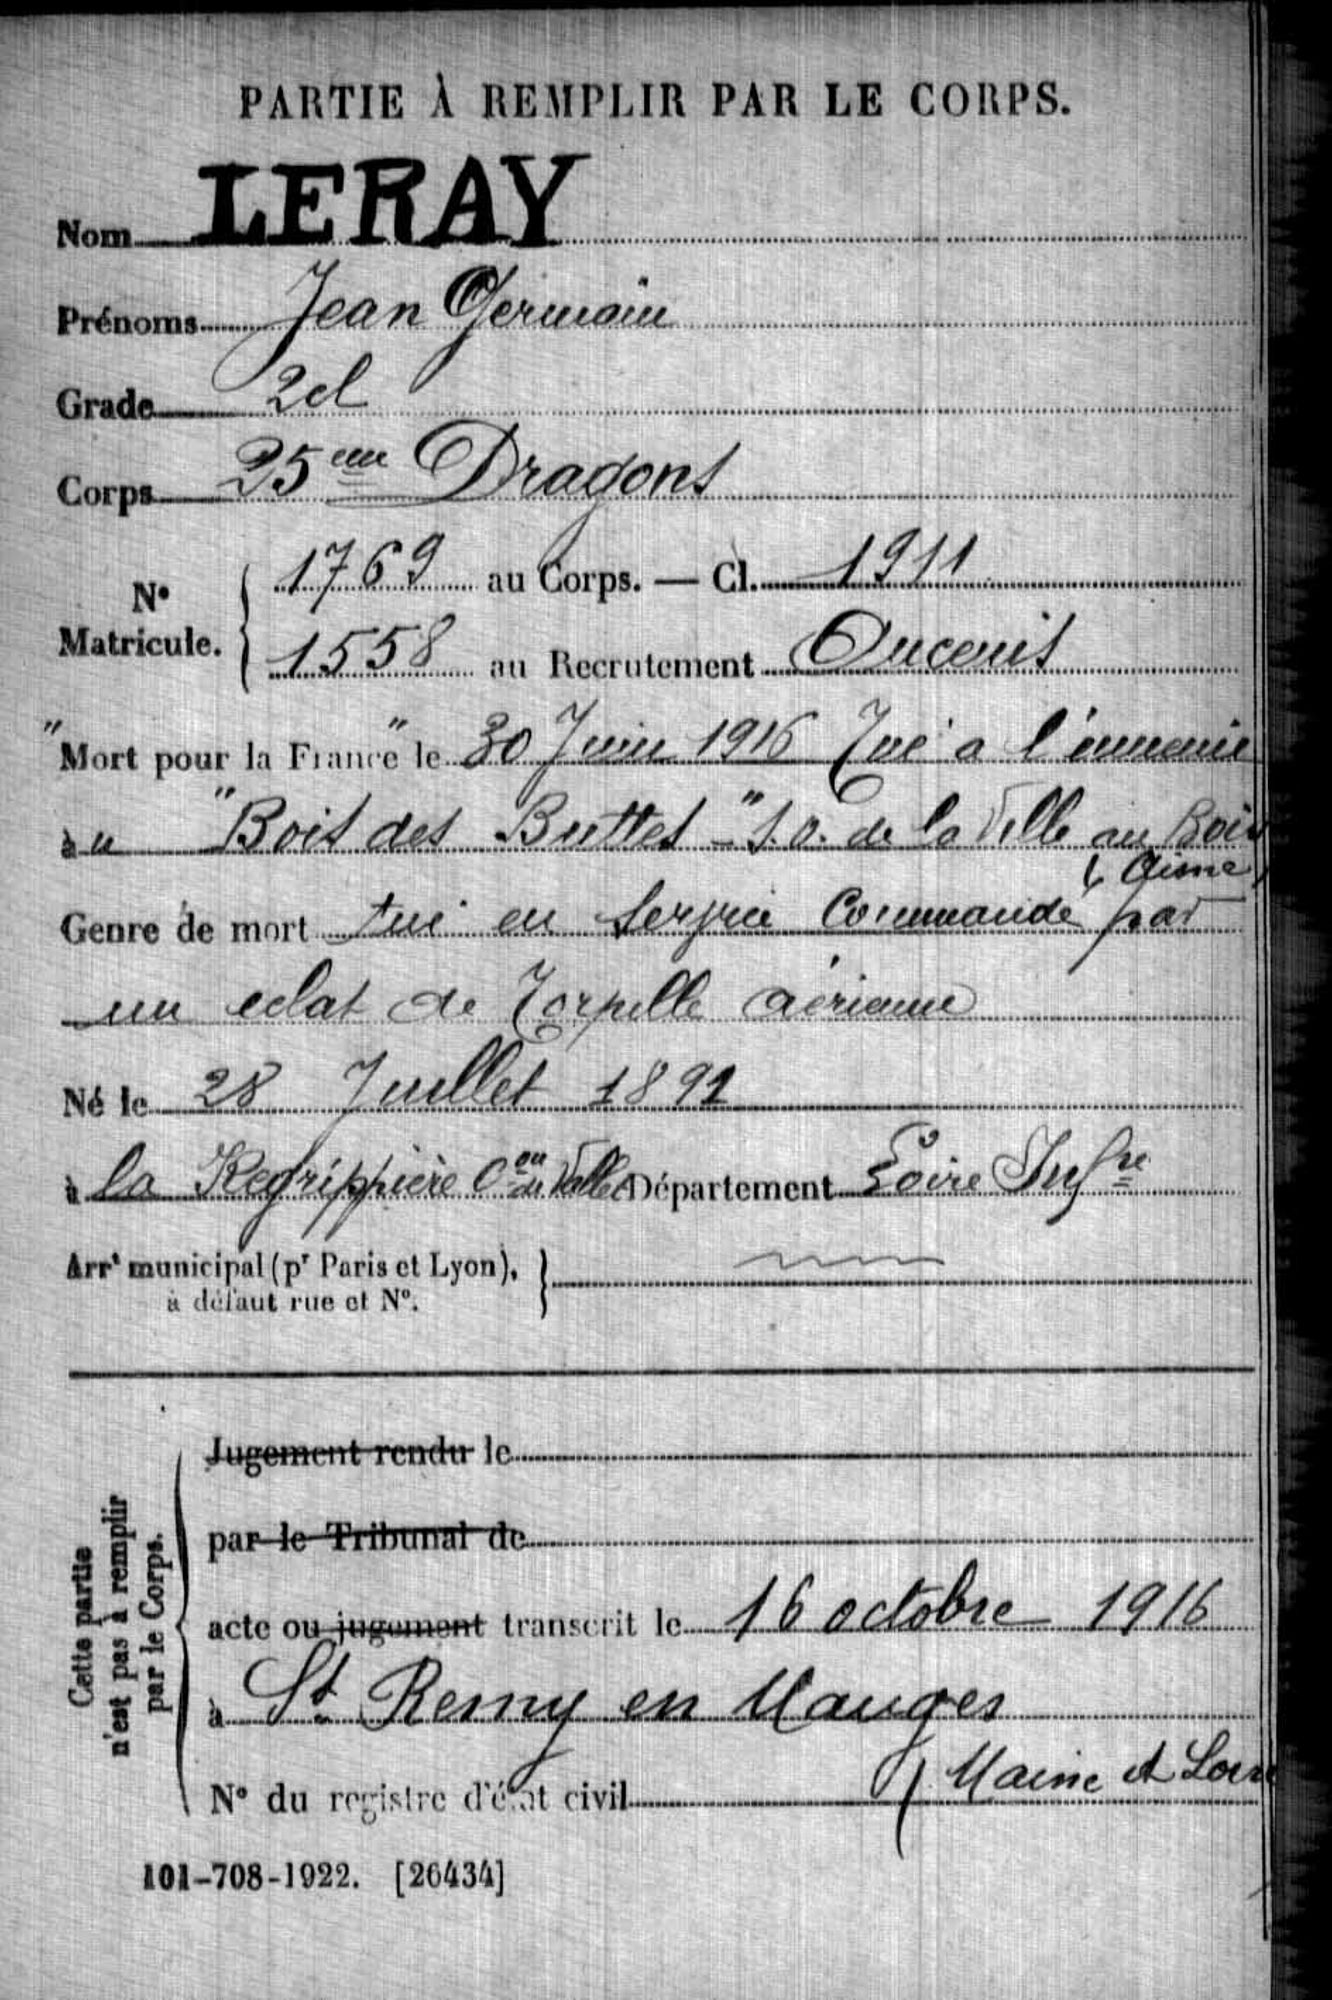 PARTIE À REMPLIR PAR LE CORPS.
Nom LERAY
Prénoms Jean Germain
Grade 2cl
Corps 25eme Dragons
N° Matricule. 1769 au Corps. — Cl. 1911
1558 au Recrutement Ancenis
"Mort pour la France" le 30 Juin 1916 Tué a l'ennemie
à u "Bois des Buttes" S.O. de la Ville au Bois
(Aisne)
Genre de mort tué en service Commandé par
un eclat de Torpille aérienne
Né le 28 Juillet 1891
à la Regrippière Cne de Vallet Département Loire Infre
Arrt municipal (pr Paris et Lyon),
à défaut rue et N°.
Cette partie
n'est pas à remplir
par le Corps.
Jugement rendu le
par le Tribunal de
acte ou jugement transcrit le 16 octobre 1916
à St Remy en Mauges
N° du registre d'état civil (Maine et Loire
101-708-1922. [26434]